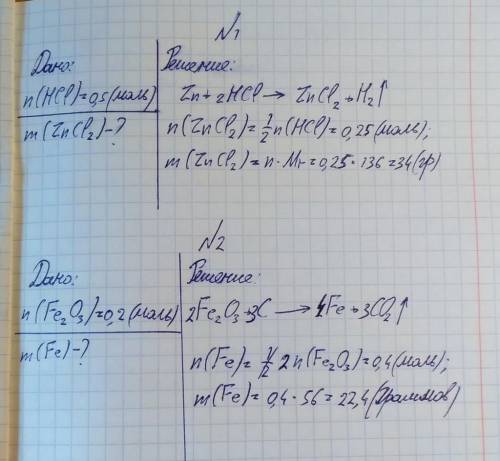 N1
Дано:
n(HCl)=0,5(моль)
m(ZnCl₂)-?
Решение:
Zn+2HCl → ZnCl₂+H₂↑
n(ZnCl₂)=½n(HCl)=0,25(моль);
m(ZnCl₂)=n·Mr=0,25·136=34(гр)
N2
Дано:
n(Fe₂O₃)=0,2(моль)
m(Fe)-?
Решение:
2Fe₂O₃+3C → 4Fe+3CO₂↑
n(Fe)= 2n(Fe₂O₃)=0,4(моль);
m(Fe)=0,4·56=22,4(граммов)